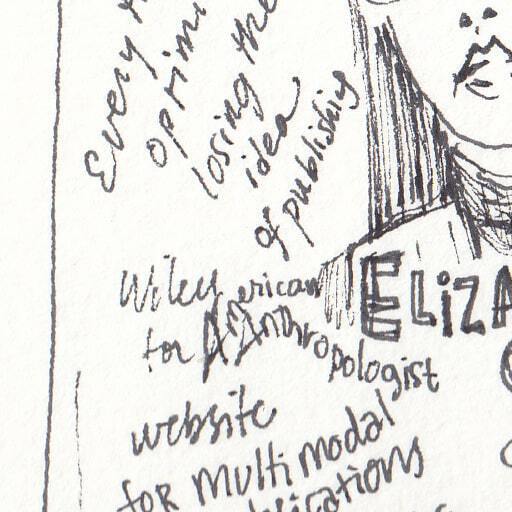 Every
optimi
losing the
idea
of publishing
Wiley
for American
Anthropologist
website
for multimodal
ELIZA